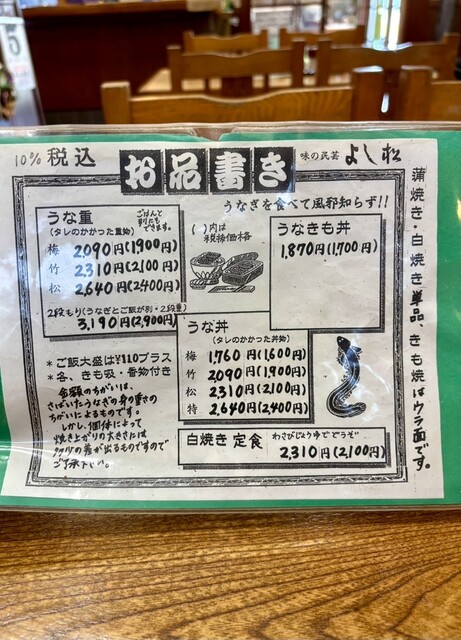 10% 税込
お品書き
味の民芸 よし松
うなぎを食べて風邪知らず!!
うな重
(タレのかかった重物)
ごはんと別にもできます。
梅 2,090円(1,900円)
竹 2,310円(2,100円)
松 2,640円(2,400円)
2段もり(うなぎとご飯が別・2段重)
3,190円(2,900円)
( )内は
税抜価格
うなきも丼
1,870円(1,700円)
うな丼
(タレのかかった丼物)
梅 1,760円(1,600円)
竹 2,090円(1,900円)
松 2,310円(2,100円)
特 2,640円(2,400円)
*ご飯大盛は¥110プラス
*各、きも吸・香物付き
金額のちがいは、
さばいたうなぎの身の重さの
ちがいによるものです。
しかし、個体によって
焼き上がりの大きさには
多少の差が出るものですので
ご了承下さい。
白焼き 定食
わさびじょうゆでどうぞ
2,310円(2,100円)
蒲焼き・白焼き単品、きも焼はウラ面です。
5